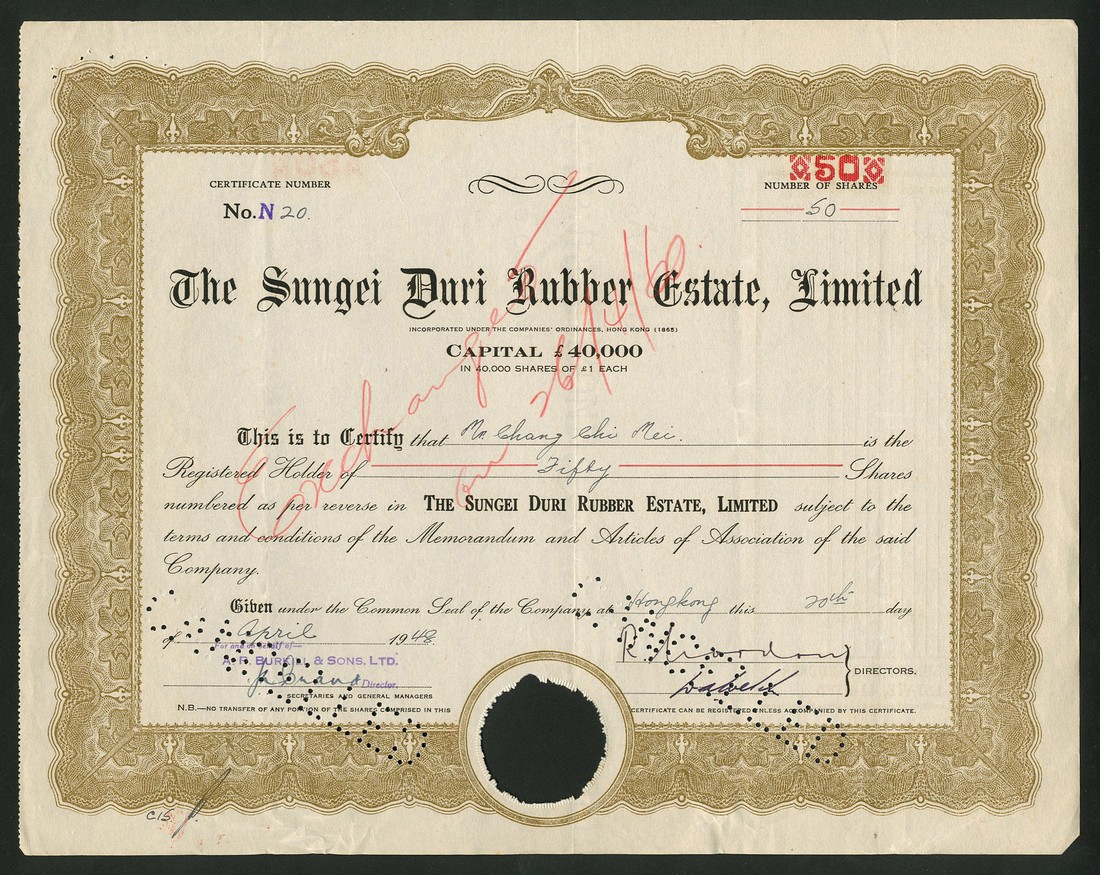 CERTIFICATE NUMBER
No. N 20.
50
NUMBER OF SHARES
50
The Sungei Duri Rubber Estate, Limited
INCORPORATED UNDER THE COMPANIES' ORDINANCES, HONG KONG (1865)
CAPITAL £40,000
IN 40.000 SHARES OF £1 EACH
Exchanged
on 26/4/60.
This is to Certify that Mr. Chang Chi Mei. is the
Registered Holder of Fifty Shares
numbered as per reverse in THE SUNGEI DURI RUBBER ESTATE, LIMITED subject to the
terms and conditions of the Memorandum and Articles of Association of the said
Company.
Given under the Common Seal of the Company at Hongkong this 20th day
of April 1948.
For and on behalf of—
A. R. BURKILL & SONS, LTD.
Director.
SECRETARIES AND GENERAL MANAGERS
DIRECTORS.
N.B.—NO TRANSFER OF ANY PORTION OF THE SHARES COMPRISED IN THIS CERTIFICATE CAN BE REGISTERED UNLESS ACCOMPANIED BY THIS CERTIFICATE.